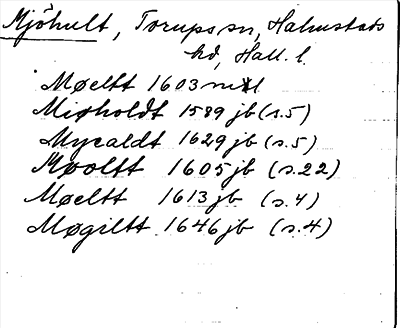 Mjöhult, Torups sn, Halmstads
hd, Hall. l.
Møeltt 1603 mtl
Miøholdt 1589 jb (s.5)
Mycaldt 1629 jb (s.5)
Møoltt 1605 jb (s.22)
Møeltt 1613 jb (s.4)
Møgiltt 1646 jb (s.4)